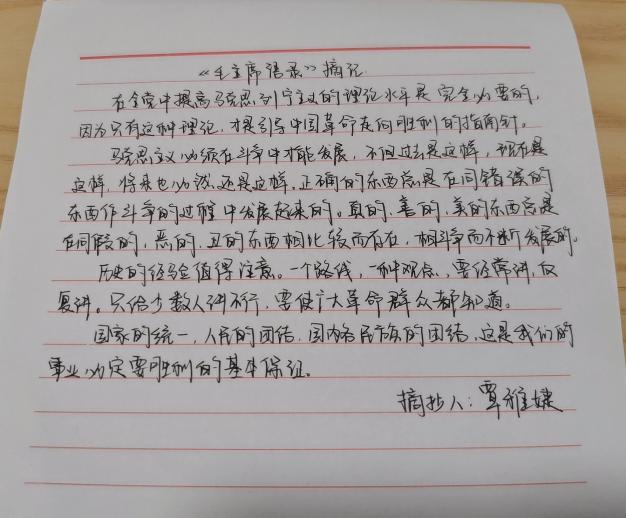 《毛主席语录》摘记
在全党中提高马克思列宁主义的理论水平是完全必要的,
因为只有这种理论,才是引导中国革命走向胜利的指南针。
马克思主义必须在斗争中才能发展,不但过去是这样,现在是
这样,将来也必须还是这样。正确的东西总是在同错误的
东西作斗争的过程中发展起来的。真的、善的、美的东西总是
在同假的、恶的、丑的东西相比较而存在,相斗争而不断发展的。
历史的经验值得注意。一个路线,一种观念,要经常讲,反
复讲。只给少数人讲不行,要使广大革命群众都知道。
国家的统一,人民的团结,国内各民族的团结,这是我们的
事业必定要胜利的基本保证。
摘抄人:覃雅婕